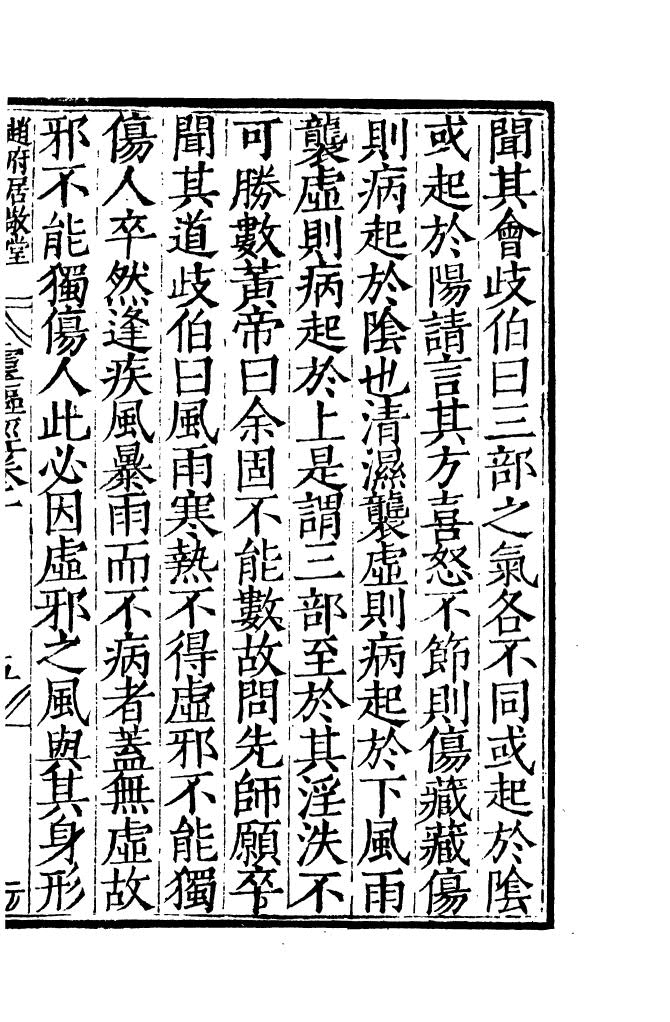 聞其會歧伯曰三部之氣各不同或起於陰
或起於陽請言其方喜怒不節則傷藏藏傷
則病起於陰也清濕襲虛則病起於下風雨
襲虛則病起於上是謂三部至於其淫泆不
可勝數黃帝曰余固不能數故問先師願卒
聞其道歧伯曰風雨寒熱不得虛邪不能獨
傷人卒然逢疾風暴雨而不病者蓋無虛故
邪不能獨傷人此必因虛邪之風與其身形
趙府居敬堂